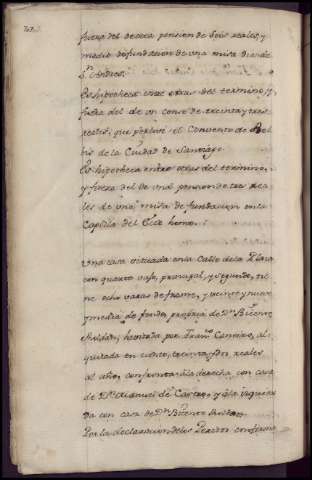 fuera del de otra pension de Seis reales, y
medio de fundacion de una misa dia de
Sn. Andres.
Es hipotheca entre otras del termino, y
fuera del de un censo de treinta y tres
reales, que percive el Convento de
de la Ciudad de Santiago.
Es hipotheca entre otras del termino,
y fuera del de una pension de tres rea
les de una misa de fundacion en la
Capilla del
Una casa situada en la Calle de la Plaza
con quarto vajo, principal, y segundo, tie
ne ocho varas de frente, y veinte y nueve
y media de fondo, propia de Dn. Bizente
havitada por Franco. al
quilada en ciento, treinta y dos reales
al año, confronta a la derecha con casa
de Dn. Manuel de Castro, y a la izquier
da con casa de Dn. Bizente
Por la declaracion de los Peritos